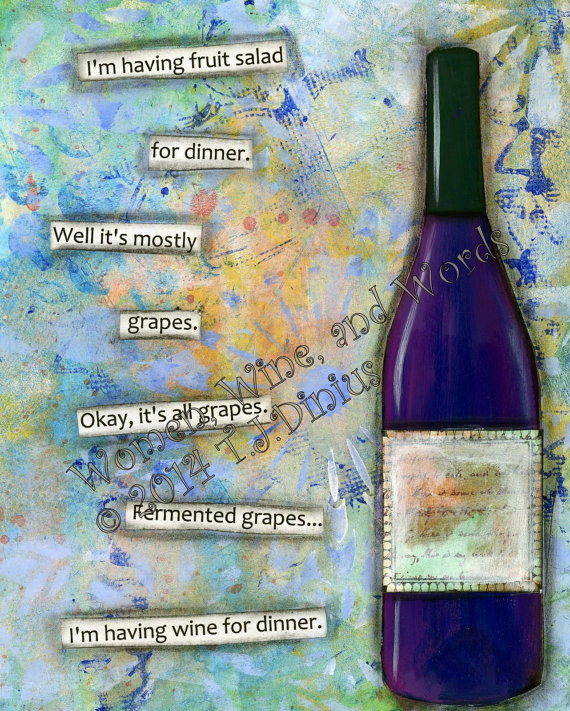 I'm having fruit salad
for dinner.
Well it's mostly
grapes.
Okay, it's all grapes.
Fermented grapes...
I'm having wine for dinner.
Women, Wine, and Words
© 2014 T.J.Dinius